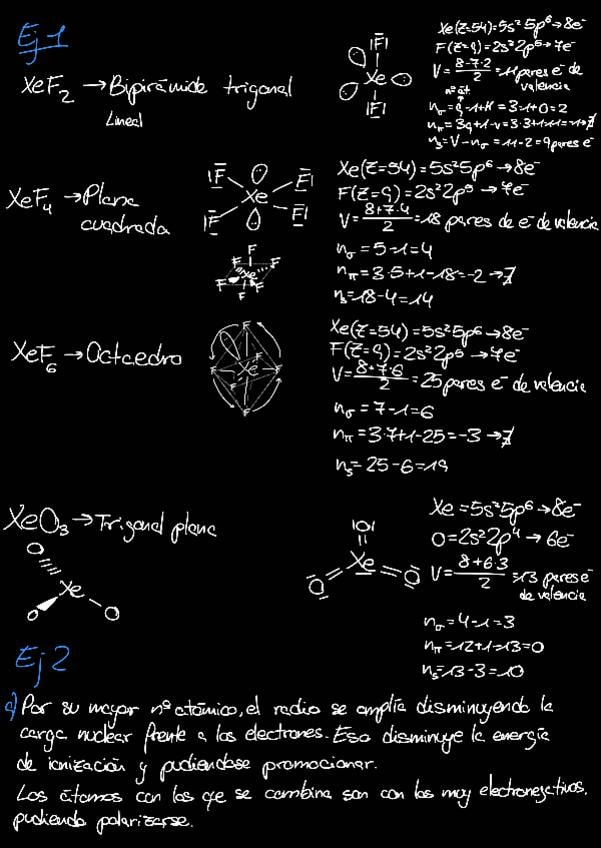 Ej 1
XeF₂ → Bipirámide trigonal
Lineal
|F̅|
Xe
|F̲|
Xe(Z=54)=5s²5p⁶→8e⁻
F(Z=9)=2s²2p⁵→7e⁻
V=(8+7·2)/2=11 pares e⁻ de valencia
nº át.
nσ=9-1+H=3-1+0=2
nπ=3q+1-v=3·3+1-11=-1→∄
ns=V-nσ=11-2=9 pares e⁻
XeF₄ → Plana cuadrada
|F̅ F̅|
Xe
|F̅ F̅|
F
F Xe F
F F
Xe(Z=54)=5s²5p⁶→8e⁻
F(Z=9)=2s²2p⁵→7e⁻
V=(8+7·4)/2=18 pares de e⁻ de valencia
nσ=5-1=4
nπ=3·5+1-18=-2→∄
ns=18-4=14
XeF₆ → Octaedro
F
F F
Xe
F F
F
Xe(Z=54)=5s²5p⁶→8e⁻
F(Z=9)=2s²2p⁵→7e⁻
V=(8+7·6)/2=25 pares e⁻ de valencia
nσ=7-1=6
nπ=3·7+1-25=-3→∄
ns=25-6=19
XeO₃ → Trigonal plana
O
Xe
O O
|O|
Xe
O O
Xe=5s²5p⁶→8e⁻
O=2s²2p⁴→6e⁻
V=(8+6·3)/2=13 pares e⁻ de valencia
nσ=4-1=3
nπ=12+1-13=0
ns=13-3=10
Ej 2
a) Por su mayor nº atómico, el radio se amplía disminuyendo la
carga nuclear frente a los electrones. Eso disminuye la energía
de ionización y pudiendose promocionar.
Los átomos con los qe se combina son con los muy electronegativos,
pudiendo polarizarse.